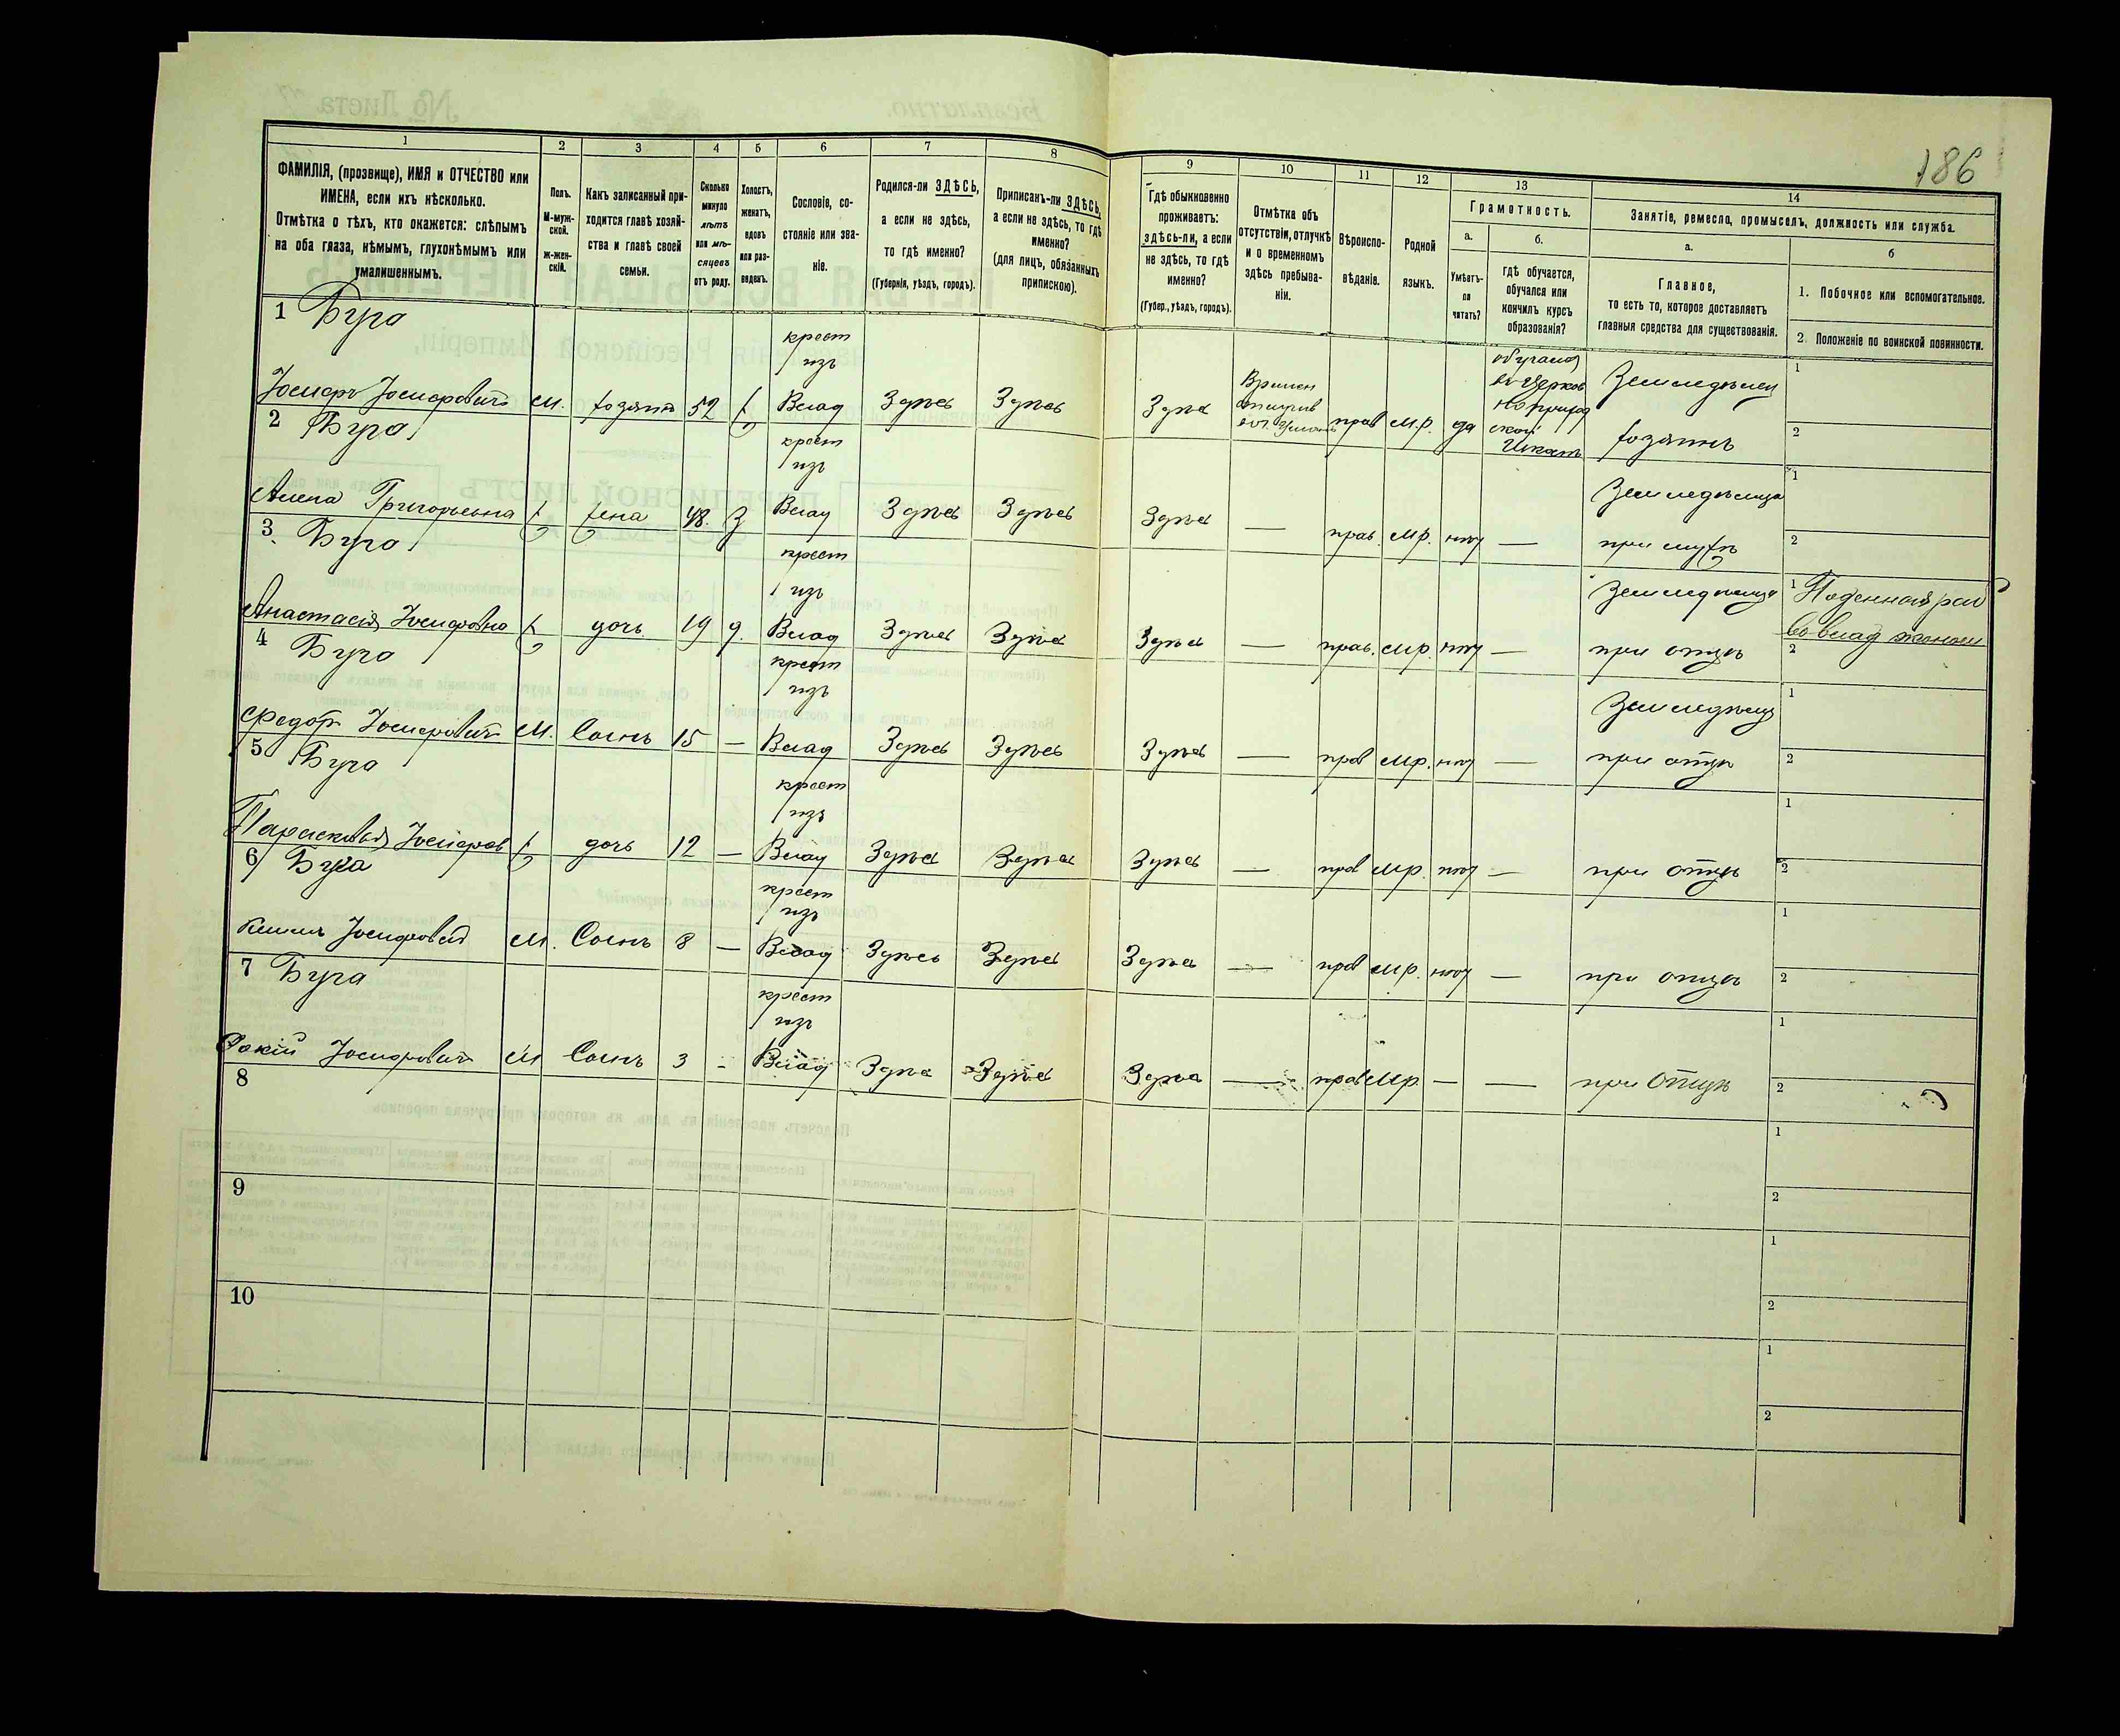 186
1
ФАМИЛІЯ, (прозвище), ИМЯ и ОТЧЕСТВО или
ИМЕНА, если ихъ нѣсколько.
Отмѣтка о тѣхъ, кто окажется: слѣпымъ
на оба глаза, нѣмымъ, глухонѣмымъ или
умалишеннымъ.
2
Полъ.
М-муж-
ской.
ж-жен-
скій.
3
Какъ записанный при-
ходится главѣ хозяй-
ства и главѣ своей
семьи.
4
Сколько
минуло
лѣтъ
или мѣ-
сяцевъ
отъ роду.
5
Холостъ,
женатъ,
вдовъ
или раз-
веденъ.
6
Сословіе, со-
стояніе или зва-
ніе.
7
Родился-ли ЗДѢСЬ,
а если не здѣсь,
то гдѣ именно?
(Губернія, уѣздъ, городъ).
8
Приписанъ-ли ЗДѢСЬ,
а если не здѣсь, то гдѣ
именно?
(для лицъ, обязанныхъ
припискою).
9
Гдѣ обыкновенно
проживаетъ:
здѣсь-ли, а если
не здѣсь, то гдѣ
именно?
(Губер., уѣздъ, городъ).
10
Отмѣтка объ
отсутствіи, отлучкѣ
и о временномъ
здѣсь пребыва-
ніи.
11
Вѣроиспо-
вѣданіе.
12
Родной
языкъ.
13
Грамотность.
а.
Умѣетъ-
ли
читать?
б.
гдѣ обучается,
обучался или
кончилъ курсъ
образованія?
14
Занятіе, ремесло, промыселъ, должность или служба.
а.
Главное,
то есть то, которое доставляетъ
главныя средства для существованія.
б
1. Побочное или вспомогательное.
2. Положеніе по воинской повинности.
1 Буга
Іосифъ Іосифовичъ м. хозяинъ 52 ж крест изъ Влад Здѣсь Здѣсь Здѣсь прав м.р. да обучался Землѣдѣлец хозяинъ
1
2
2 Буга
Алена Григорьевна ж жена 48. з крест изъ Влад Здѣсь Здѣсь Здѣсь — прав. мр. нѣт — Землѣдѣлица при мужѣ
1
2
3. Буга
Анастасія Іосифовна ж дочь 19 д. крест изъ Влад Здѣсь Здѣсь Здѣсь — прав. мр. нѣт — Землѣдѣлица при отцѣ
1 Поденная
2
4 Буга
Федоръ Іосифовичъ м. Сынъ 15 — крест изъ Влад Здѣсь Здѣсь Здѣсь — прав мр. нѣт — Землѣдѣлец при отцѣ
1
2
5 Буга
Парасковья Іосифов ж дочь 12 — крест изъ Влад Здѣсь Здѣсь Здѣсь — прав мр. нѣт — при отцѣ
1
2
6 Буга
Іосифовичъ м. Сынъ 8 — крест изъ Влад Здѣсь Здѣсь Здѣсь — прав мр. нѣт — при отцѣ
1
2
7 Буга
Іосифовичъ м Сынъ 3 - крест изъ Влад Здѣсь Здѣсь Здѣсь — прав мр. — — при отцѣ
1
2
8
1
2
9
1
2
10
1
2